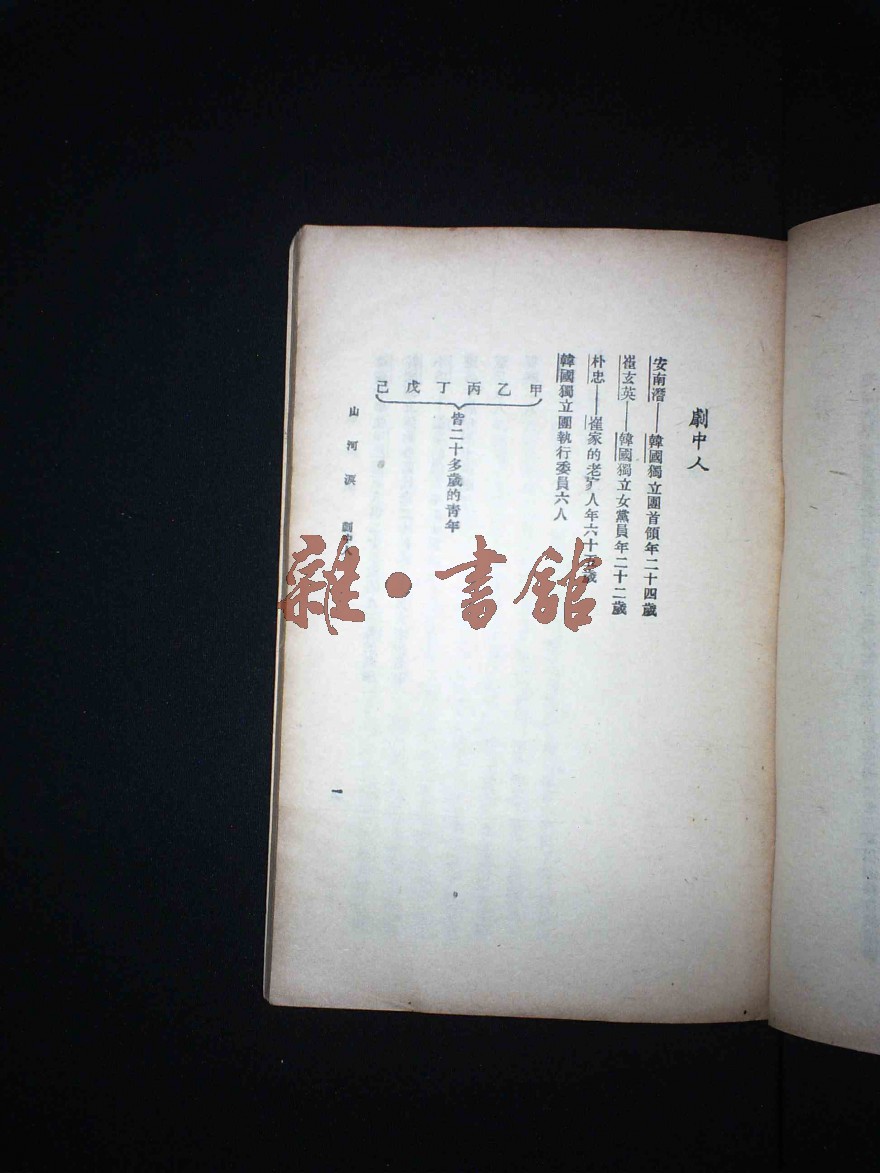 劇中人
安南潛——韓國獨立團首領年二十四歲
崔玄英——韓國獨立女黨員年二十二歲
朴忠——崔家的老疒人年六十五歲
韓國獨立團執行委員六人
甲乙丙丁戊己
皆二十多歲的青年
山河淚 劇中人
一
雜·書館